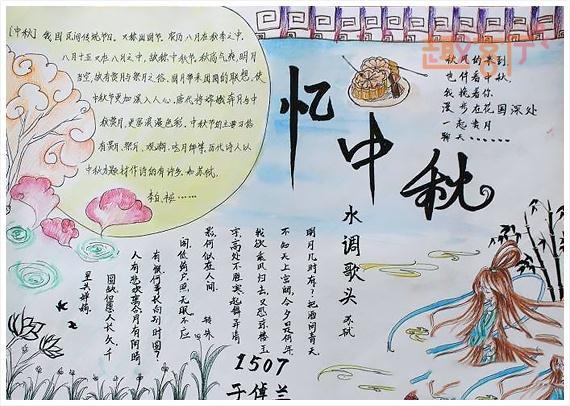 [中秋] 我国民间传统节日。又称团圆节。农历八月在秋季之中,
八月十五又在八月之中,故称中秋节。秋高气爽,明月
当空,故有赏月与祭月之俗。圆月带来团圆的联想,使
中秋节更加深入人心。唐代将嫦娥奔月与中
秋赏月,更富浪漫色彩。中秋节的主要习俗
有赏月、祭月、观潮、吃月饼等。历代诗人以
中秋为题材作诗的有许多。如苏轼、
李白、福……
忆中秋
秋风的来到
也伴着中秋,
我挽着你
漫步在花园深处
一起赏月
聊天……
水调歌头 苏轼
明月几时有?把酒问青天
不知天上宫阙,今夕是何年
我欲乘风归去,又恐琼楼玉
宇,高处不胜寒,起舞弄清
影,何似在人间。 转朱
阁,低绮户,照无眠,不应
有恨,何事长向别时圆?
人有悲欢离合,月有阴晴
圆缺,但愿人长久,千
里共婵娟。
1507
于倬兰